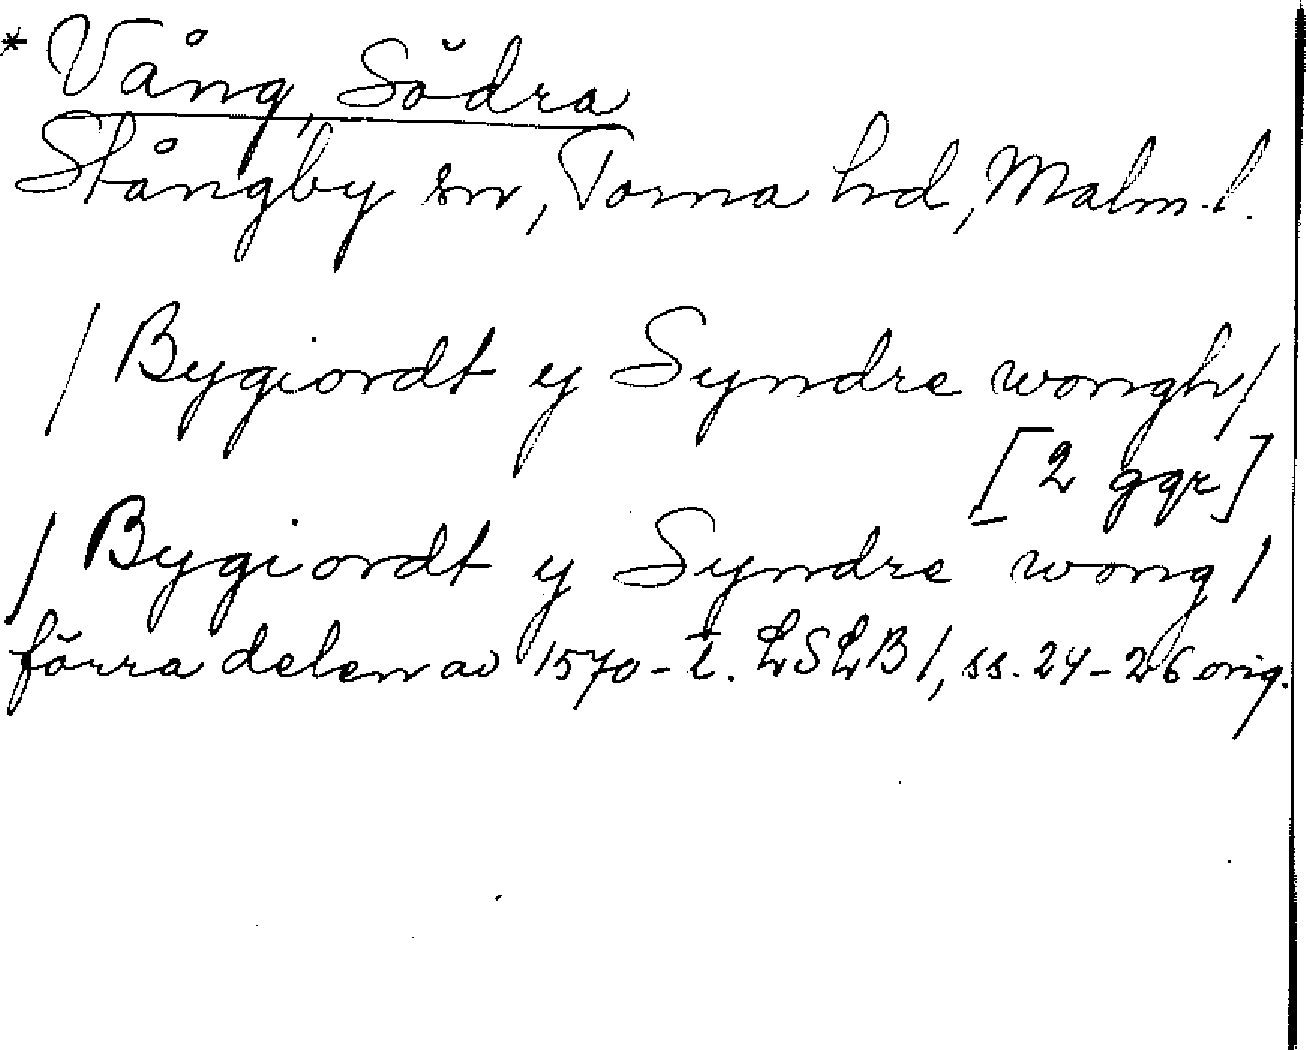 * Vång, Södra
Stångby sn, Torna hd, Malm. l.
/ Bygiordt y Syndre wongh /
[2 ggr]
/ Bygiordt y Syndre wong /
förra delen av 1570-t. LSLB 1, ss. 24-26 orig.